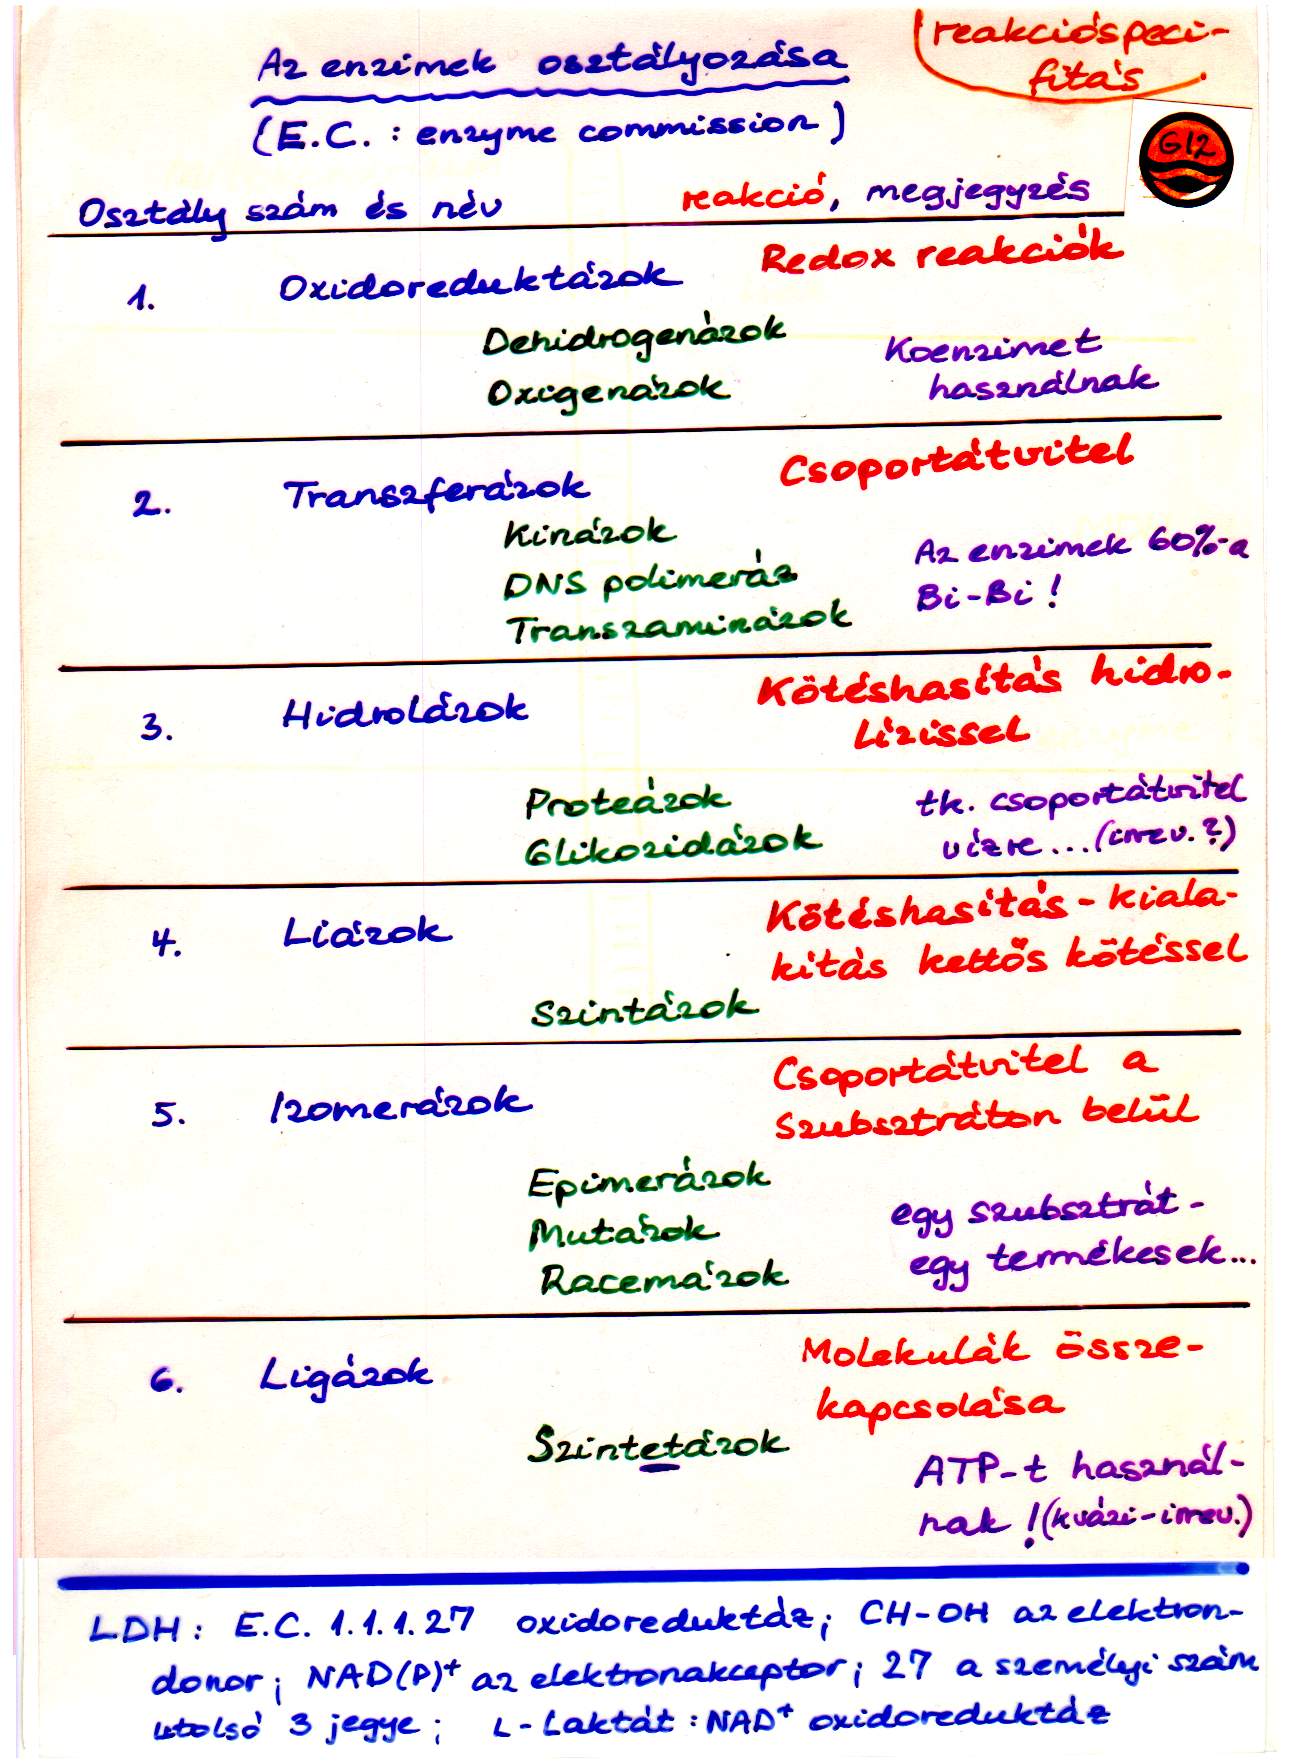 reakcióspeci-
fitás
Az enzimek osztályozása
(E.C. : enzyme commission)
G12
Osztály szám és név reakció, megjegyzés
1. Oxidoreduktázok Redox reakciók
Dehidrogenázok Koenzimet
Oxigenázok használnak
2. Transzferázok Csoportátvitel
Kinázok
DNS polimeráz Az enzimek 60%-a
Transzaminázok Bi-Bi!
3. Hidrolázok Kötéshasítás hidro-
lízissel
Proteázok tk. csoportátvitel
Glikozidázok vízre...(irrev.?)
4. Liázok Kötéshasítás - kiala-
kítás kettős kötéssel
Szintázok
5. Izomerázok Csoportátvitel a
szubsztráton belül
Epimerázok
Mutázok egy szubsztrát -
Racemázok egy termékesek...
6. Ligázok Molekulák össze-
kapcsolása
Szintetázok ATP-t használ-
nak! (kvázi-irrev.)
LDH: E.C. 1.1.1.27 oxidoreduktáz; CH-OH az elektron-
donor; NAD(P)+ az elektronakceptor; 27 a személyi szám
utolsó 3 jegye; L-Laktát : NAD+ oxidoreduktáz